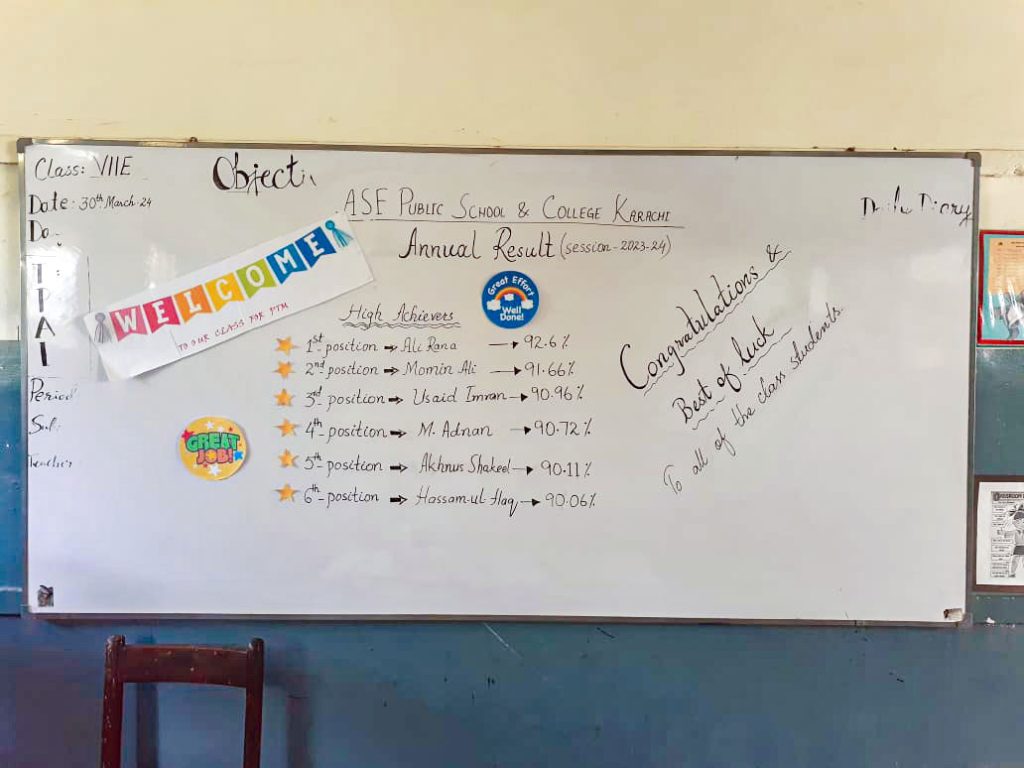 Class: VIIE
Date: 30th March-24
T
P
A
I
Period
Teacher
ASF PUBLIC SCHOOL & COLLEGE KARACHI
Annual Result (session-2023-24)
WELCOME
TO OUR CLASS FOR PTM
Great Effort
Well
Done!
High Achievers
1st position → Ali Rana → 92.6%
2nd position → Momin Ali → 91.66%
3rd position → Usaid Imran → 90.96%
4th position → M. Adnan → 90.72%
5th position → Akhnus Shakeel → 90.11%
6th position → Hassam-ul-Haq → 90.06%
GREAT
JOB!
Congratulations &
Best of luck
To all of the class students.
Daily Diary